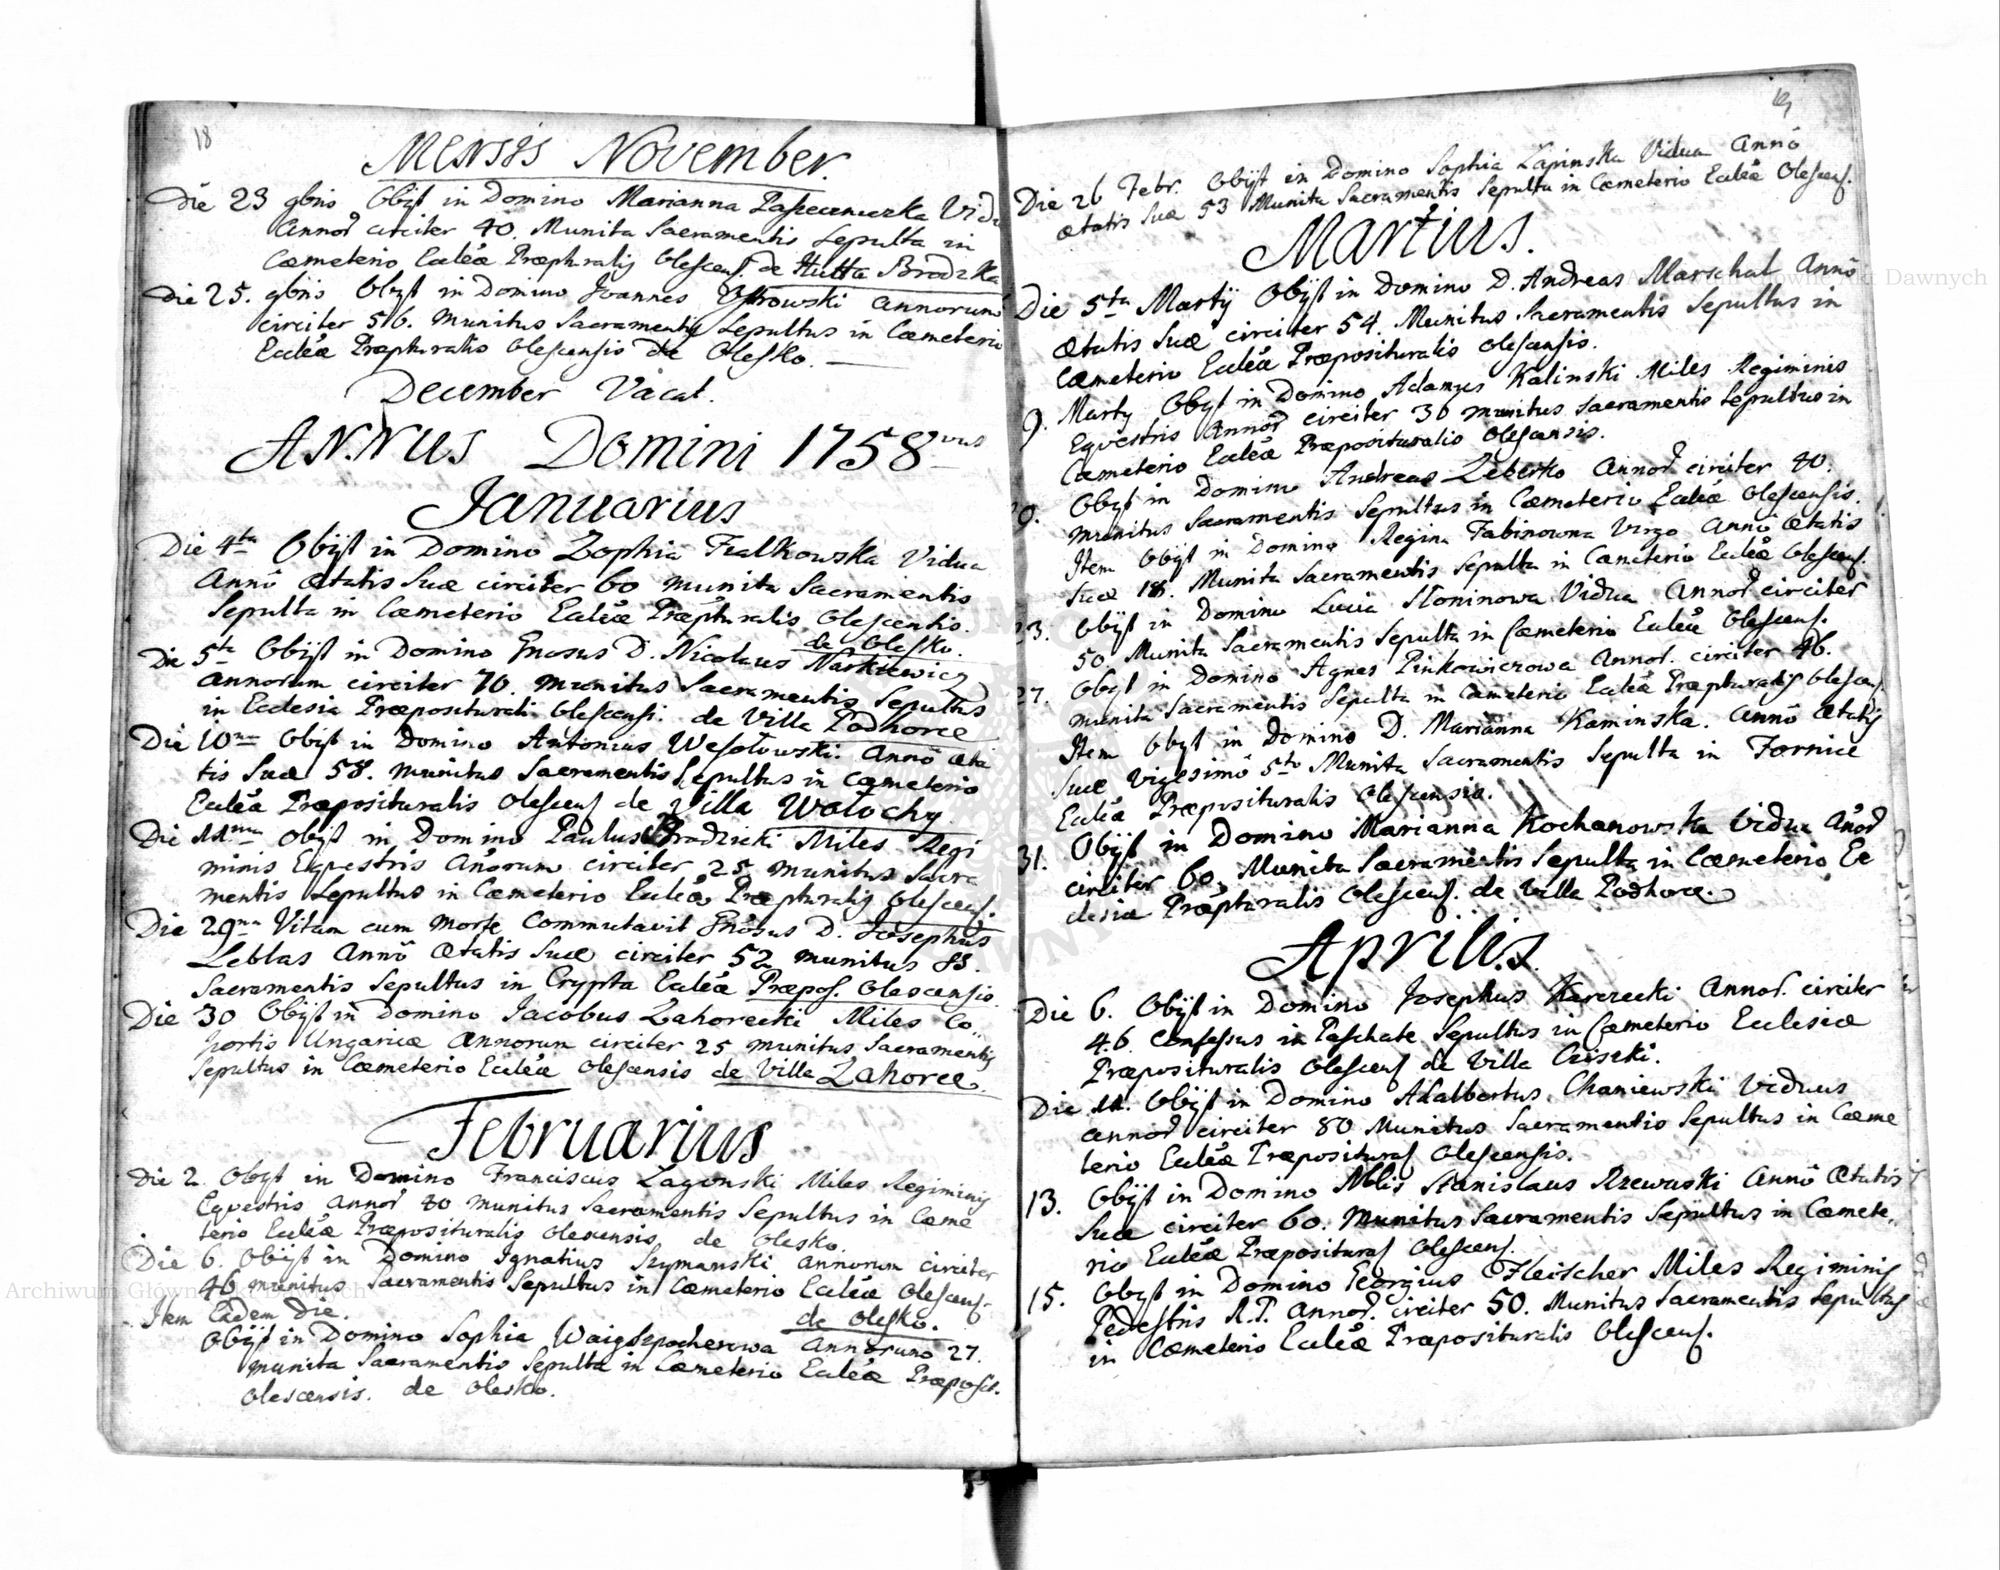 18
Mensis November.
Die 23 9bris Obijt in Domino Marianna Vidu
Annor circiter 40. Munita Sacramentis Sepulta in
Cæmeterio Eccleæ Præpturalis Olescens. de Hutta Brodzka
Die 25. 9bris Obijt in Domino Joannes Ostrowski annorum
circiter 56. munitus Sacramentis Sepultus in Cæmeterio
Eccleæ Præpturalis Olescensis de Olesko.
December Vacat.
Annus Domini 1758vus
Januarius
Die 4ta Obijt in Domino Zophia Fialkowska Vidua
Anno ætatis suæ circiter 60 munita Sacramentis
Sepulta in Cæmeterio Eccleæ Præpturalis Olescensis.
de Olesko.
Die 5ta Obijt in Domino Gnosus D. Nicolaus Narkiewicz
annorum circiter 70. munitus Sacramentis Sepultus
in Ecclesia Præpositurali Olescensi. de Villa Podhorce
Die 10ma Obijt in Domino Antonius Wesołowski. Anno æta
tis suæ 58. munitus Sacramentis Sepultus in Cæmeterio
Eccleæ Præposituralis Olescens de Villa Wołochy.
Die 11ma Obijt in Domino Paulus Brodzicki Miles Regi
minis Eqvestris Anorum circiter 25 munitus Sacra
mentis Sepultus in Cæmeterio Eccleæ Præpturalis Olescens.
Die 29na Vitam cum morte Commutavit Gnosus D. Josephus
Leblas Anno ætatis suæ circiter 52 munitus SS.
Sacramentis Sepultus in Crypta Eccleæ Præpos. Olescensis.
Die 30 Obijt in Domino Jacobus Zahorecki Miles Co
hortis Ungaricæ Annorum circiter 25 munitus Sacramentis
Sepultus in Cæmeterio Eccleæ Olescensis de Villa Zahorce.
Februarius
Die 2. Obijt in Domino Franciscus Lagonski Miles Regiminis
Eqvestris annor 40 munitus Sacramentis Sepultus in Cæme
terio Eccleæ Præposituralis Olescensis de Olesko.
Die 6. Obijt in Domino Ignatius Szymanski annorum circiter
46 munitus Sacramentis Sepultus in Cæmeterio Eccleæ Olescens.
de Olesko.
Item Eadem Die.
Obijt in Domino Sophia Annorum 27.
munita Sacramentis Sepulta in Cæmeterio Eccleæ Præposit.
Olescensis. de Olesko.
19
Die 26 Febr. Obijt in Domino Sophia Lapinska Vidua Anno
ætatis suæ 53 Munita Sacramentis Sepulta in Cæmeterio Eccleæ Olescens.
Martius.
Die 5ta Martij Obijt in Domino D. Andreas Marschal Anno
ætatis suæ circiter 54. Munitus Sacramentis Sepultus in
Cæmeterio Eccleæ Præposituralis Olescensis.
9. Martij Obijt in Domino Adamus Kalinski Miles Regiminis
Eqvestris Annor circiter 30 munitus Sacramentis Sepultus in
Cæmeterio Eccleæ Præposituralis Olescensis.
Obijt in Domino Andreas Zeberko Annor circiter 40.
munitus Sacramentis Sepultus in Cæmeterio Eccleæ Olescensis.
Item Obijt in Domino Regina Fabinowna Virgo Anno ætatis
suæ 18. Munita Sacramentis Sepulta in Cæmeterio Eccleæ Olescens.
23. Obijt in Domino Lucia Słoninowa Vidua Annor circiter
50. Munita Sacramentis Sepulta in Cæmeterio Eccleæ Olescens.
27. Obijt in Domino Agnes Pinkowiczowa Annor. circiter 46.
munita Sacramentis Sepulta in Cæmeterio Eccleæ Præpturalis Olescens.
Item Obijt in Domino D. Marianna Kaminska. Anno ætatis
suæ vigesimo 5to Munita Sacramentis Sepulta in Fornice
Eccleæ Præposituralis Olescensis.
31. Obijt in Domino Marianna Kochanowska Vidua Anor
circiter 60. Munita Sacramentis Sepulta in Cæmeterio Ec
clesiæ Præpturalis Olescens. de Villa Podhorce.
Aprilis.
Die 6. Obijt in Domino Josephus Annor. circiter
46. Confessus in Paschate Sepultus in Cæmeterio Ecclesiæ
Præposituralis Olescens de Villa
Die 11. Obijt in Domino Adalbertus Chaniewski Viduus
annor circiter 80 Munitus Sacramentis Sepultus in Cæme
terio Eccleæ Præposituras Olescensis.
13. Obijt in Domino Nblis Stanislaus Rzewuski Anno ætatis
suæ circiter 60. Munitus Sacramentis Sepultus in Cæmete
rio Eccleæ Præposituras Olescens.
15. Obijt in Domino Georgius Fleischer Miles Regiminis
Pedestris R.P. annor. circiter 50. Munitus Sacramentis Sepultus
in Cæmeterio Eccleæ Præposituralis Olescens.